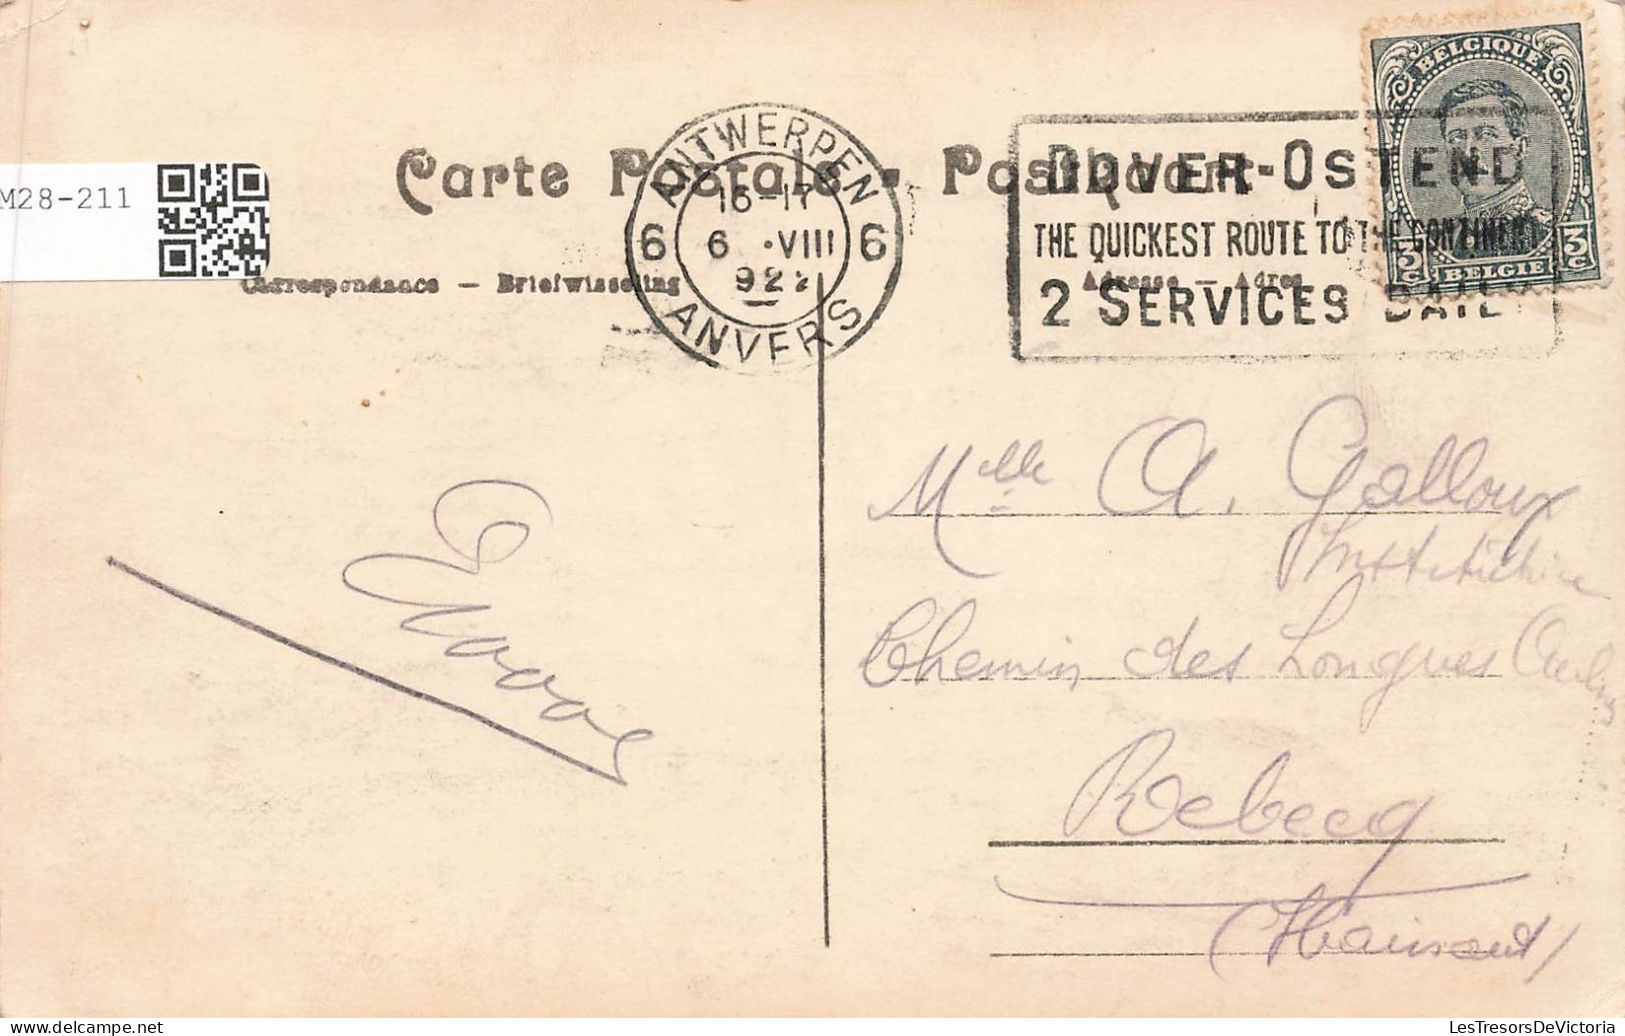 BELGIQUE
ANTWERPEN
16-17
6 6 .VIII 6
922
ANVERS
DOVER-OSTEND
THE QUICKEST ROUTE TO THE CONTINENT
2 SERVICES DAILY
3c 3c
BELGIE
Carte Postale - Postkaart
M28-211
Correspondance — Briefwisseling
Adresse — Adres
Mlle A. Galloux
Institutrice
Chemin des Longues
Rebecq
(Hainaut)
LesTresorsDeVictoria